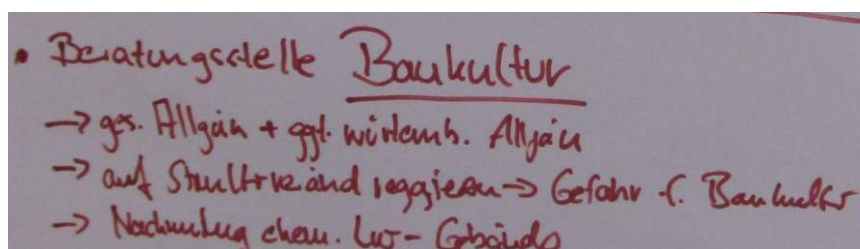 • Beratungsstelle Baukultur
→ ges. Allgäu + ggf. württemb. Allgäu
→ auf Strukturveränd reagieren → Gefahr f. Baukultur
→ Nachnutzung ehem. Lw-Gebäude